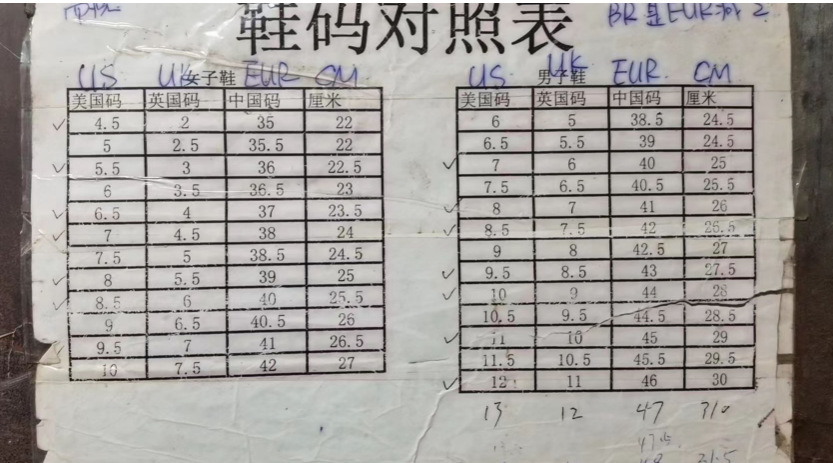 鞋码对照表
BR是EUR减2
US UK 女子鞋 EUR CM
美国码 英国码 中国码 厘米
4.5 2 35 22
5 2.5 35.5 22
5.5 3 36 22.5
6 3.5 36.5 23
6.5 4 37 23.5
7 4.5 38 24
7.5 5 38.5 24.5
8 5.5 39 25
8.5 6 40 25.5
9 6.5 40.5 26
9.5 7 41 26.5
10 7.5 42 27
US UK 男子鞋 EUR CM
美国码 英国码 中国码 厘米
6 5 38.5 24.5
6.5 5.5 39 24.5
7 6 40 25
7.5 6.5 40.5 25.5
8 7 41 26
8.5 7.5 42 26.5
9 8 42.5 27
9.5 8.5 43 27.5
10 9 44 28
10.5 9.5 44.5 28.5
11 10 45 29
11.5 10.5 45.5 29.5
12 11 46 30
13 12 47 310
47.5
48 31.5